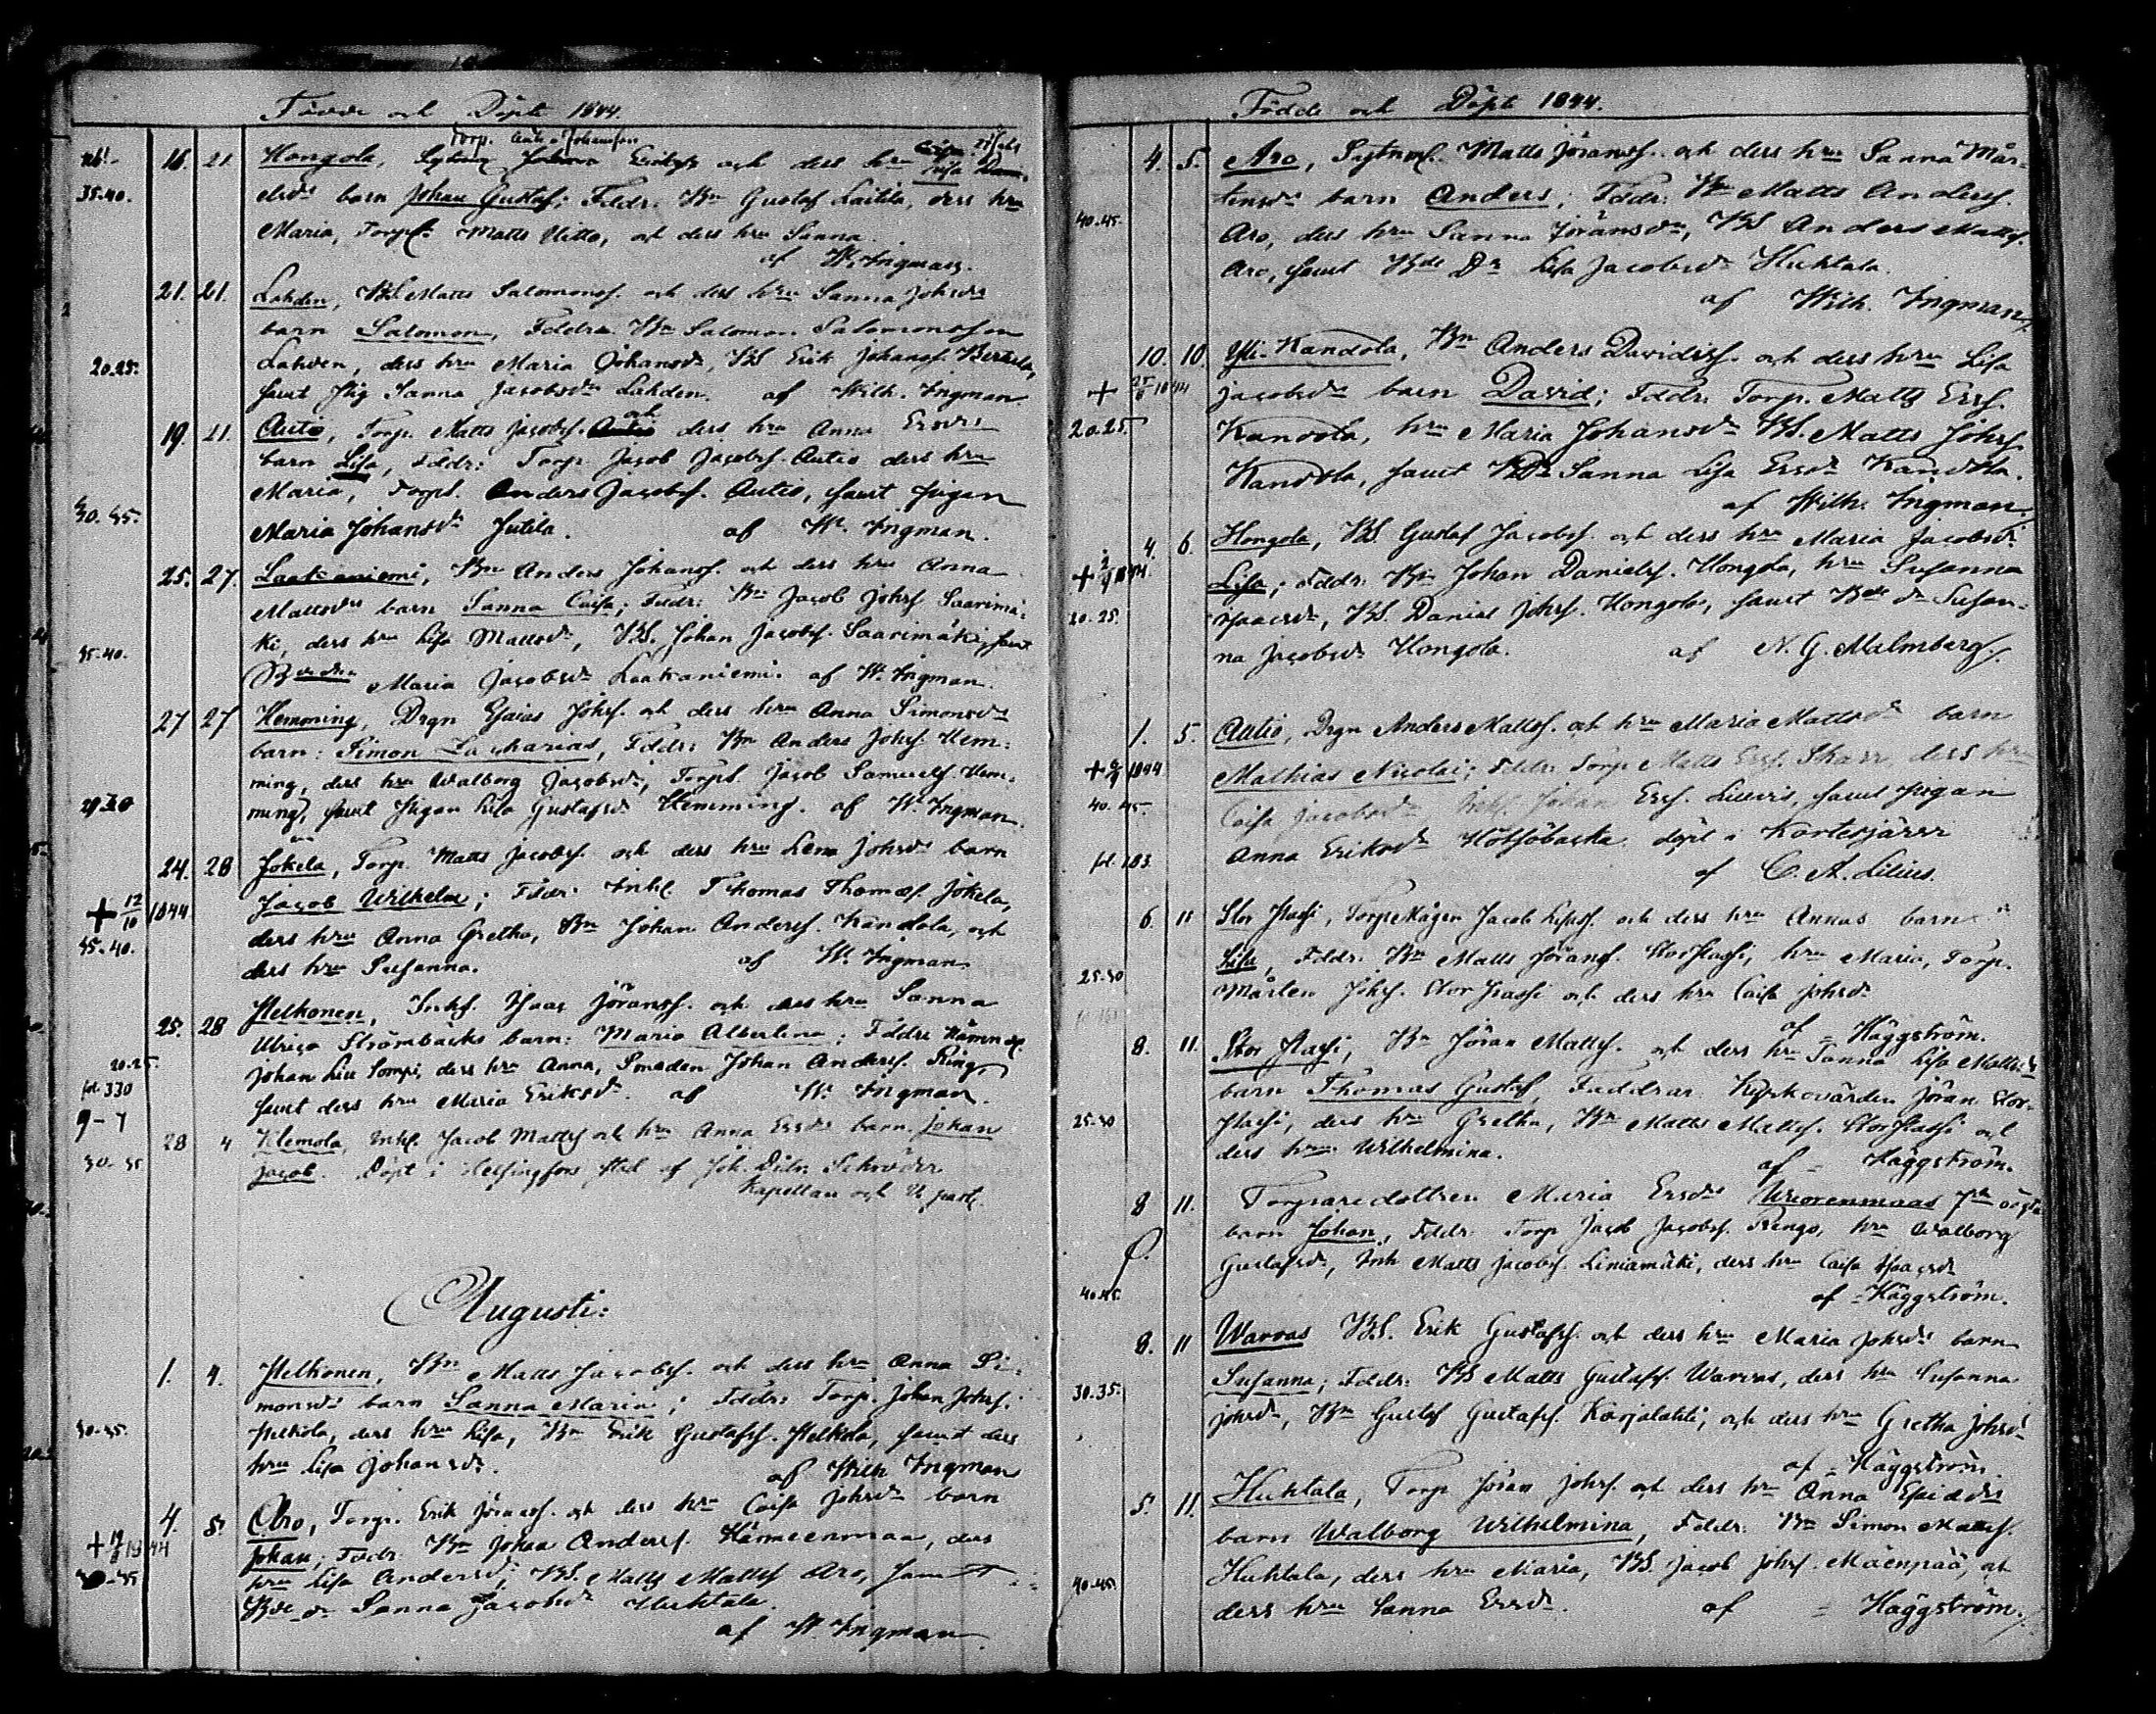 Födde och Döpte 1844.
Torp. Johansson
16. 21. Hongola, och dess hru Lisa
35-40. barn Johan Gustaf; Fddr. Bn Gustaf Laitila, dess hru
Maria, Torps. Matts Uitto, och dess hru Sanna.
af W. Ingman.
21. 21. Lahden, BS Matts Salomonsf. och dess hru Sanna Johsdr
barn Salomon, Fddra. Bn Salomon Salomonsson
20.25. Lahden, dess hru Maria Johansdr, BS Erik Johansf.
samt Pig Sanna Jacobsdr Lahden. af Wilh. Ingman.
19. 21. Autio, Torp. Matts Jacobsf. och dess hru Anna Ersdr
barn Lisa, Fddr: Torp. Jacob Jacobsf. Autio dess hru
30.35. Maria, Torps. Anders Jacobsf. Autio, samt pigan
Maria Johansdr Jutila. af W. Ingman.
25. 27. Laakaniemi, Bn Anders Johansf. och dess hru Anna
Mattsdr barn Sanna Caisa; Fddr: Bn Jacob Johsf Saarimä-
35-40. ki, dess hru Lisa Mattsdr, BS. Johan Jacobsf. Saarimäki, samt
Maria Jacobsdr Laakaniemi. af W. Ingman.
27 27 Hemming, Drgn Esaias Johsf. och dess hru Anna Simonsdr
barn: Simon Zacharias, Fddr: Bn Anders Johsf. Hem-
ming, dess hru Walborg Jacobsdr, Torps. Jacob Samuelsf. Hem-
ming, samt Pigan Lisa Gustafsdr Hemming. af W. Ingman.
24. 28 Jokela, Torp. Matts Jacobsf. och dess hru Lena Johsdr barn
+ 12/10 1844. Jacob Wilhelm; Fddr. Inhs. Thomas Thomasf. Jokela,
35-40. dess hru Anna Gretha, Bn Johan Andersf. Kandola, och
dess hru Susanna. af W. Ingman.
25. 28 Pelkonen, Inhs. Isaac Jöransf. och dess hru Sanna
Ulrica Strömbäcks barn: Maria Albertina; Fddre
20.25. Johan dess hru Anna, Smeden Johan Andersf. Ring,
fol. 330 samt dess hru Maria Eriksdr. af W. Ingman.
28 4 Klemola, Inhs. Jacob Mattsf och hru Anna Ersdr barn. Johan
30-35 Jacob. Döpt i Helsingfors stad af Joh. Schröder
Kapellan och
Augusti:
1. 4. Pelkonen, Bn Matts Jacobsf. och dess hru Anna Si-
monsdr barn Sanna Maria; Fddr: Torp. Johan Johsf.
30-35. Pelkola, dess hru Lisa, Bn Erik Gustafsf. Pelkola, samt dess
hru Lisa Johansdr. af Wilh Ingman
4. 5. Aro, Torp. Erik Jöransf. och dess hru Caisa Johsdr barn
+ 1844 Johan; Fddr. Bn Johan Andersf. Hämeenmaa, dess
30-35 hru Lisa Andersdr, BS. Matts Mattsf Aro, samt
Bde dr Sanna Jacobsdr Huhtala.
af W. Ingman.
Födde och Döpte 1844.
4. 5. Aro, Matts Jöransf. och dess hru Sanna Mår-
tensdr barn Anders; Fddr: Bn Matts Andersf.
40.45. Aro, dess hru Sanna Jöransdr, BS Anders Mattsf.
Aro, samt Bde Dr Lisa Jacobsdr Huhtala.
af Wilh. Ingman
10. 10. Yli-Kandola, Bn Anders Davidsf. och dess hru Lisa
+ 1844 Jacobsdr barn David; Fddr. Torp. Matts Ersf.
20.25. Kandola, hru Maria Johansdr BS. Matts Johsf
Kandola, samt BDr Sanna Lisa Ersdr Kandola.
af Wilh. Ingman
4. 6. Hongola, BS. Gustaf Jacobsf. och dess hru Maria Jacobsdr
+ 1844. Lisa; Fddr. Bn Johan Danielsf. Hongola, hru Susanna
20.25. Isaacsdr, BS. Daniel Johsf. Hongola, samt Bde dr Susan-
na Jacobsdr Hongola. af N. G. Malmberg.
1. 5. Autio, Drgn Anders Mattsf. och hru Maria Mattsdr barn
+ 1844. Mathias Nicolai; Fddr. Torp Matts Ersf. dess hru
40.45. Caisa Jacobsdr Inhs. Johan Ersf. samt pigan
fol. 183. Anna Eriksdr döpt i Kortesjärvi
af C. A. Lilius.
6. 11 Stor Passi, Torp Mågen Jacob och dess hru Annas barn
Lisa, Fddr. Bn Matts Jöransf. Stor Passi, hru Maria, Torp.
25.30 Mårten Johsf. Stor Passi och dess hru Caisa Johsdr
af Häggström.
8. 11. Stor Passi, Bn Jöran Mattsf. och dess hru Sanna Lisa Mattsdr
barn Thomas Gustaf, Faddrar Kyrkovärden Jöran Stor-
25.30 Passi, dess hru Gretha, Bn Matts Mattsf. Stor Passi och
dess hru Wilhelmina.
af = Häggström.
8 11. Torparedottren Maria Ersdr Wuorenmaas
barn Johan, Fddr. Torp Jacob Jacobsf. Rengo, hru Walborg
Gustafsdr, Inh Matts Jacobsf. Liniamäki, dess hru Caisa Isaacsdr
40.45. af = Häggström.
8. 11 Warvas BS. Erik Gustafsf. och dess hru Maria Johsdr barn
30.35. Susanna; Fddr. BS Matts Gustafsf. Warvas, dess hru Susanna
Johsdr, Bn Gustaf Gustafsf. Karjalahti, och dess hru Gretha Johsdr
af = Häggström
5. 11. Huhtala, Torp Jöran Johsf. och dess hru Anna
barn Walborg Wilhelmina, Fddr. Bn Simon Mattsf.
40.45. Huhtala, dess hru Maria, BS. Jacob Johsf. Mäenpää, och
dess hru Sanna Ersdr. af = Häggström.